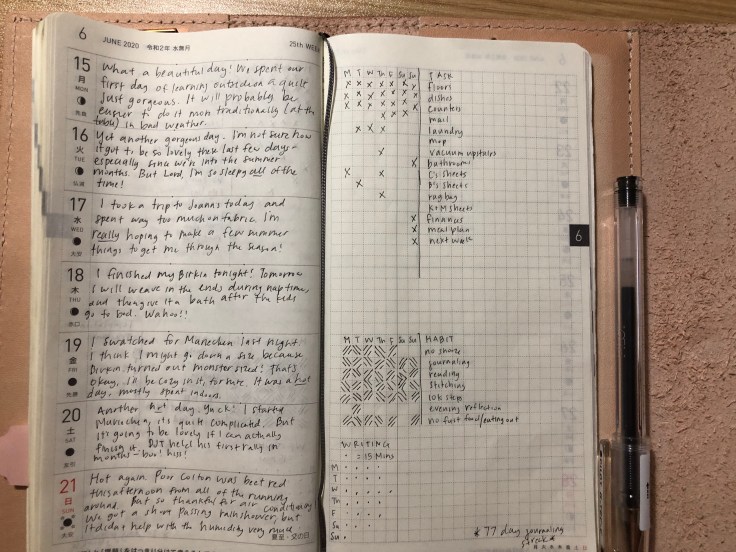 6 JUNE 2020 令和2年 水無月 25th WEEK
15 月 MON 先負
What a beautiful day! We spent our
first day of learning outside on a quilt
just gorgeous. It will probably be
easier to do it more traditionally (at the
table) in bad weather.
16 火 TUE 仏滅
Yet another gorgeous day. I'm not sure how
it got to be so lovely these last few days -
especially since we're into the summer
months. But Lord, I'm so sleepy all of the
time!
17 水 WED 大安
I took a trip to Joanns today and
spent way too much on fabric. I'm
really hoping to make a few summer
things to get me through the season!
18 木 THU 赤口
I finished my Birkin tonight! Tomorrow
I will weave in the ends during nap time,
and then give it a bath after the kids
go to bed. Wahoo!!
19 金 FRI 先勝
I swatched for Marechen last night
I think I might go down a size because
Birkin turned out monster sized! That's
okay, I'll be cozy in it, for sure. It was a hot
day, mostly spent indoors.
20 土 SAT 友引
Another hot day. Yuck! I started
Marechen, it's quite complicated. But
it's going to be lovely if I can actually
finish it. DJT held his first rally in
months - boo! hiss!
21 日 SUN 大安
Hot again. Poor Colton was beet red
this afternoon from all of the running
around. But so thankful for air conditioning
We got a short passing rain shower, but
it didn't help with the humidity very much.
夏至・父の日
M T W Th F Sa Su TASK
floors
dishes
counters
mail
laundry
mop
vacuum upstairs
bathrooms
C's sheets
B's sheets
rug bag
K+M sheets
finances
meal plan
next week
6
M T W Th F Sa Su HABIT
no snooze
journaling
reading
stitching
10k steps
evening reflection
no fast food/eating out
WRITING
· = 15 Mins
M
T
W
Th
F
Sa
Su
* 77 day journaling
streak *